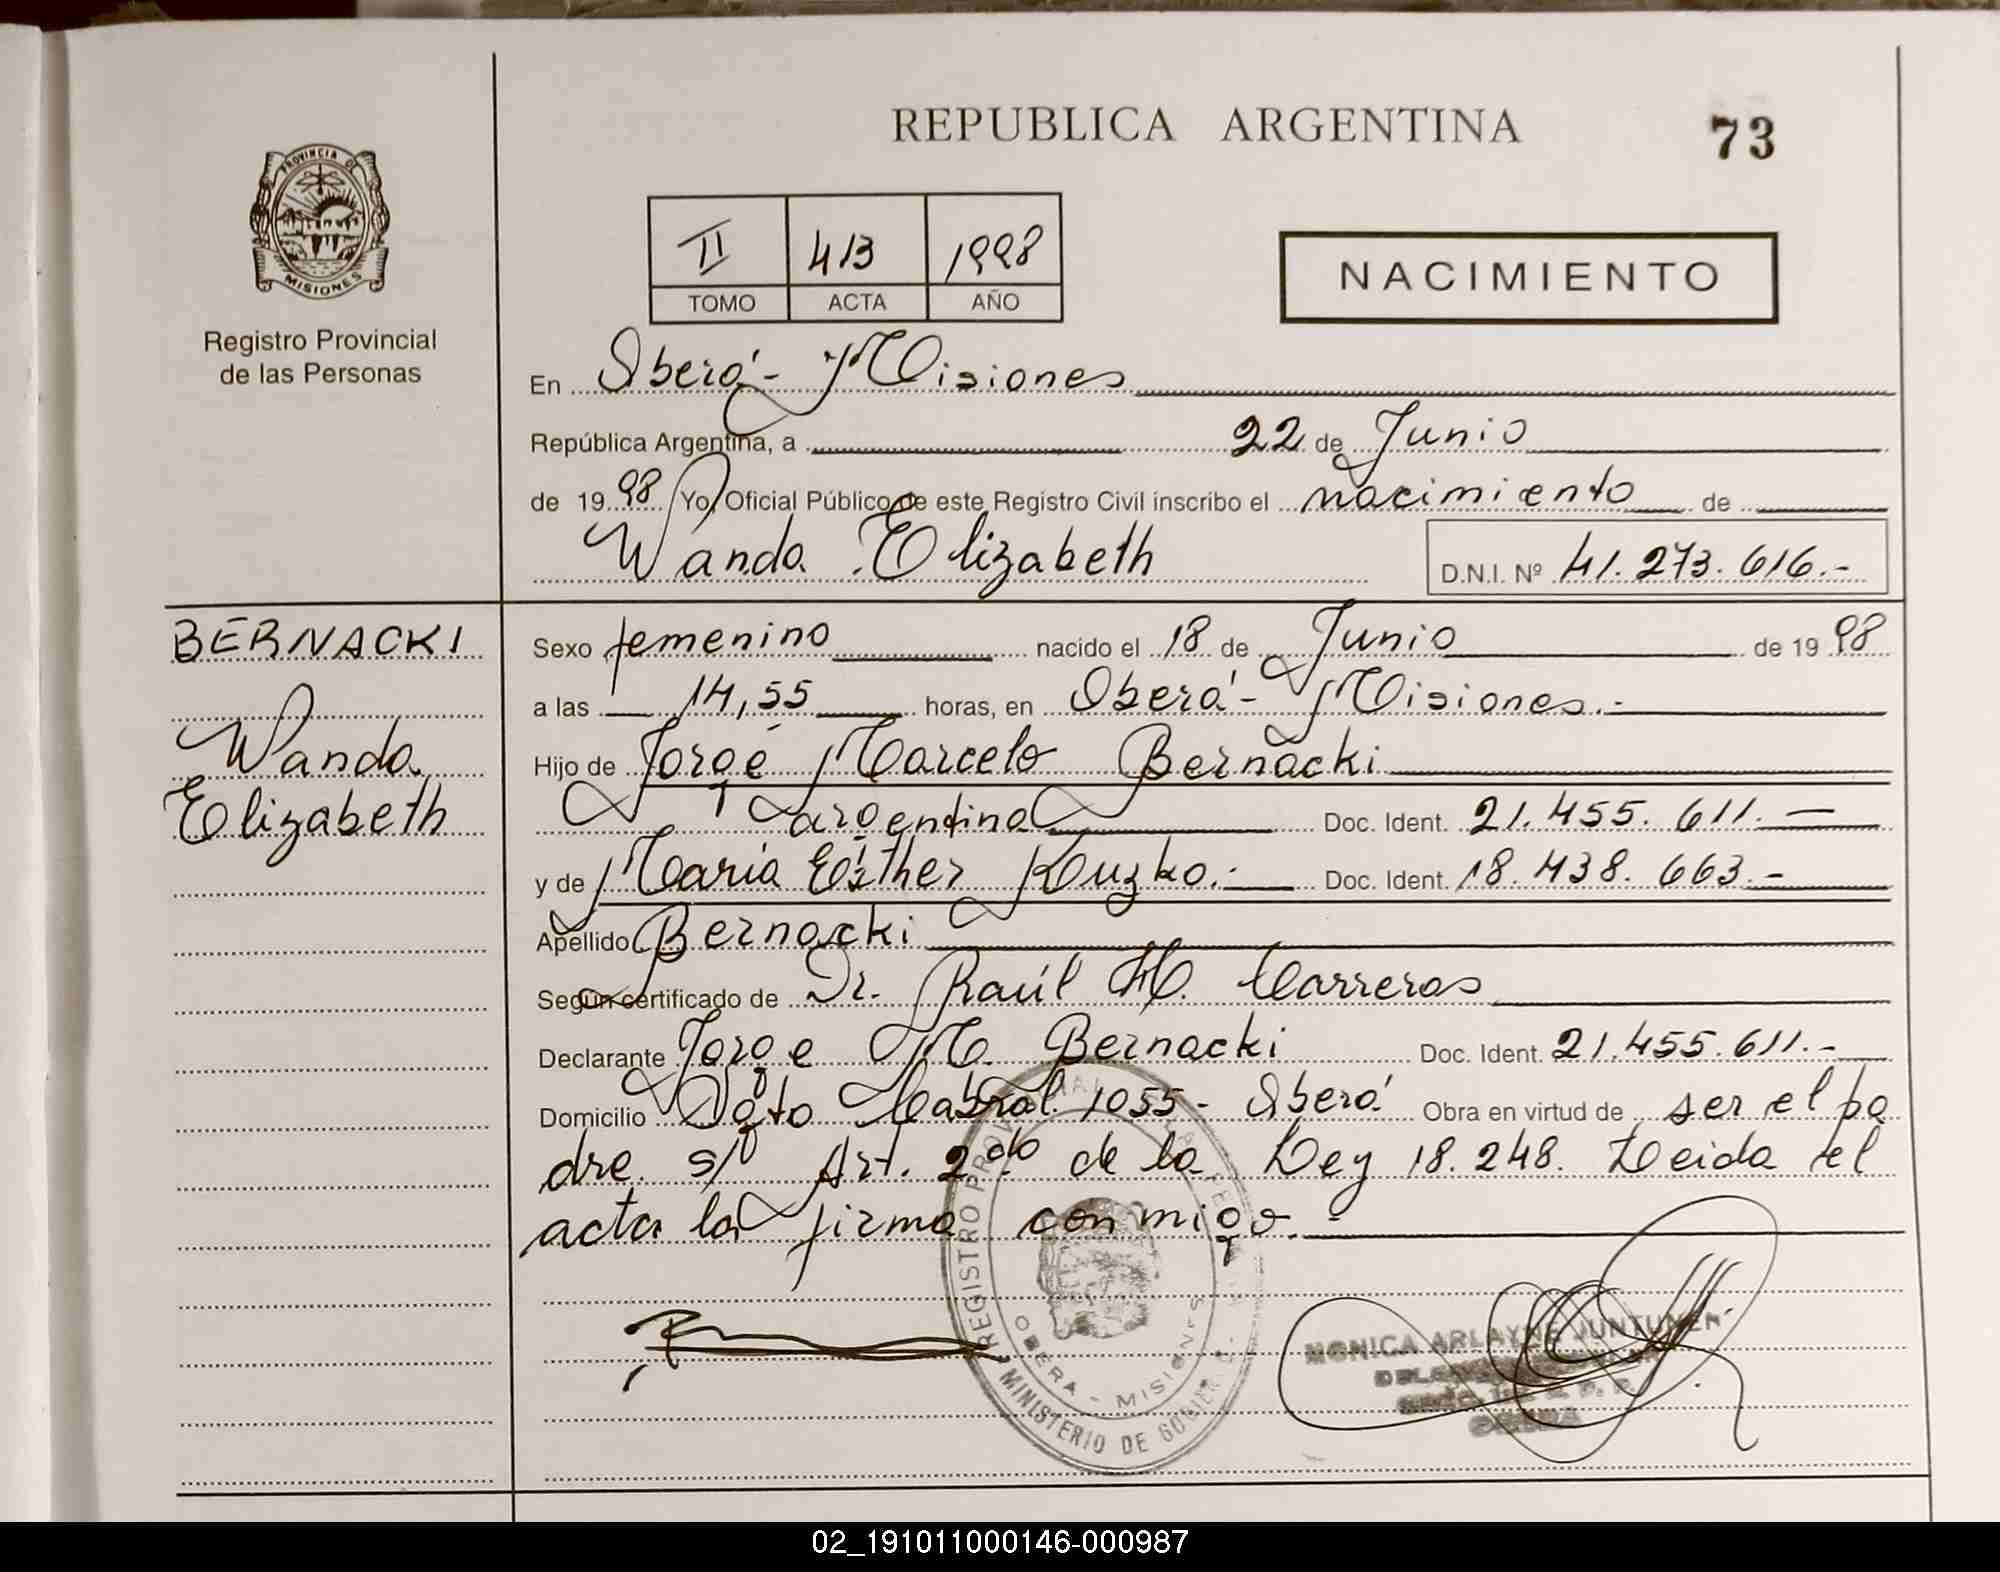 REPUBLICA ARGENTINA
73
PROVINCIA DE
MISIONES
Registro Provincial
de las Personas
II 413 1998
TOMO ACTA AÑO
NACIMIENTO
En Oberá - Misiones
República Argentina, a 22 de Junio
de 1998 Yo, Oficial Público de este Registro Civil inscribo el nacimiento de
Wanda Elizabeth
D.N.I. Nº 41.273.616.-
BERNACKI
Wanda
Elizabeth
Sexo femenino nacido el 18 de Junio de 1998
a las 14,55 horas, en Oberá - Misiones.-
Hijo de Jorge Marcelo Bernacki
argentino Doc. Ident. 21.455.611.-
y de María Esther Kuzko.- Doc. Ident. 18.438.663.-
Apellido Bernacki
Según certificado de Dr. Raúl H. Carreras
Declarante Jorge M. Bernacki Doc. Ident. 21.455.611.-
Domicilio Sgto Cabral 1055 - Oberá Obra en virtud de ser el pa
dre s/ Art. 2do de la Ley 18.248. Leida el
acta la firma conmigo.-
REGISTRO PROVINCIAL DE LAS PERSONAS
OBERA - MISIONES
MINISTERIO DE GOBIERNO
MONICA ARLAYNE JUNTUNEN
OBERA
02_191011000146-000987